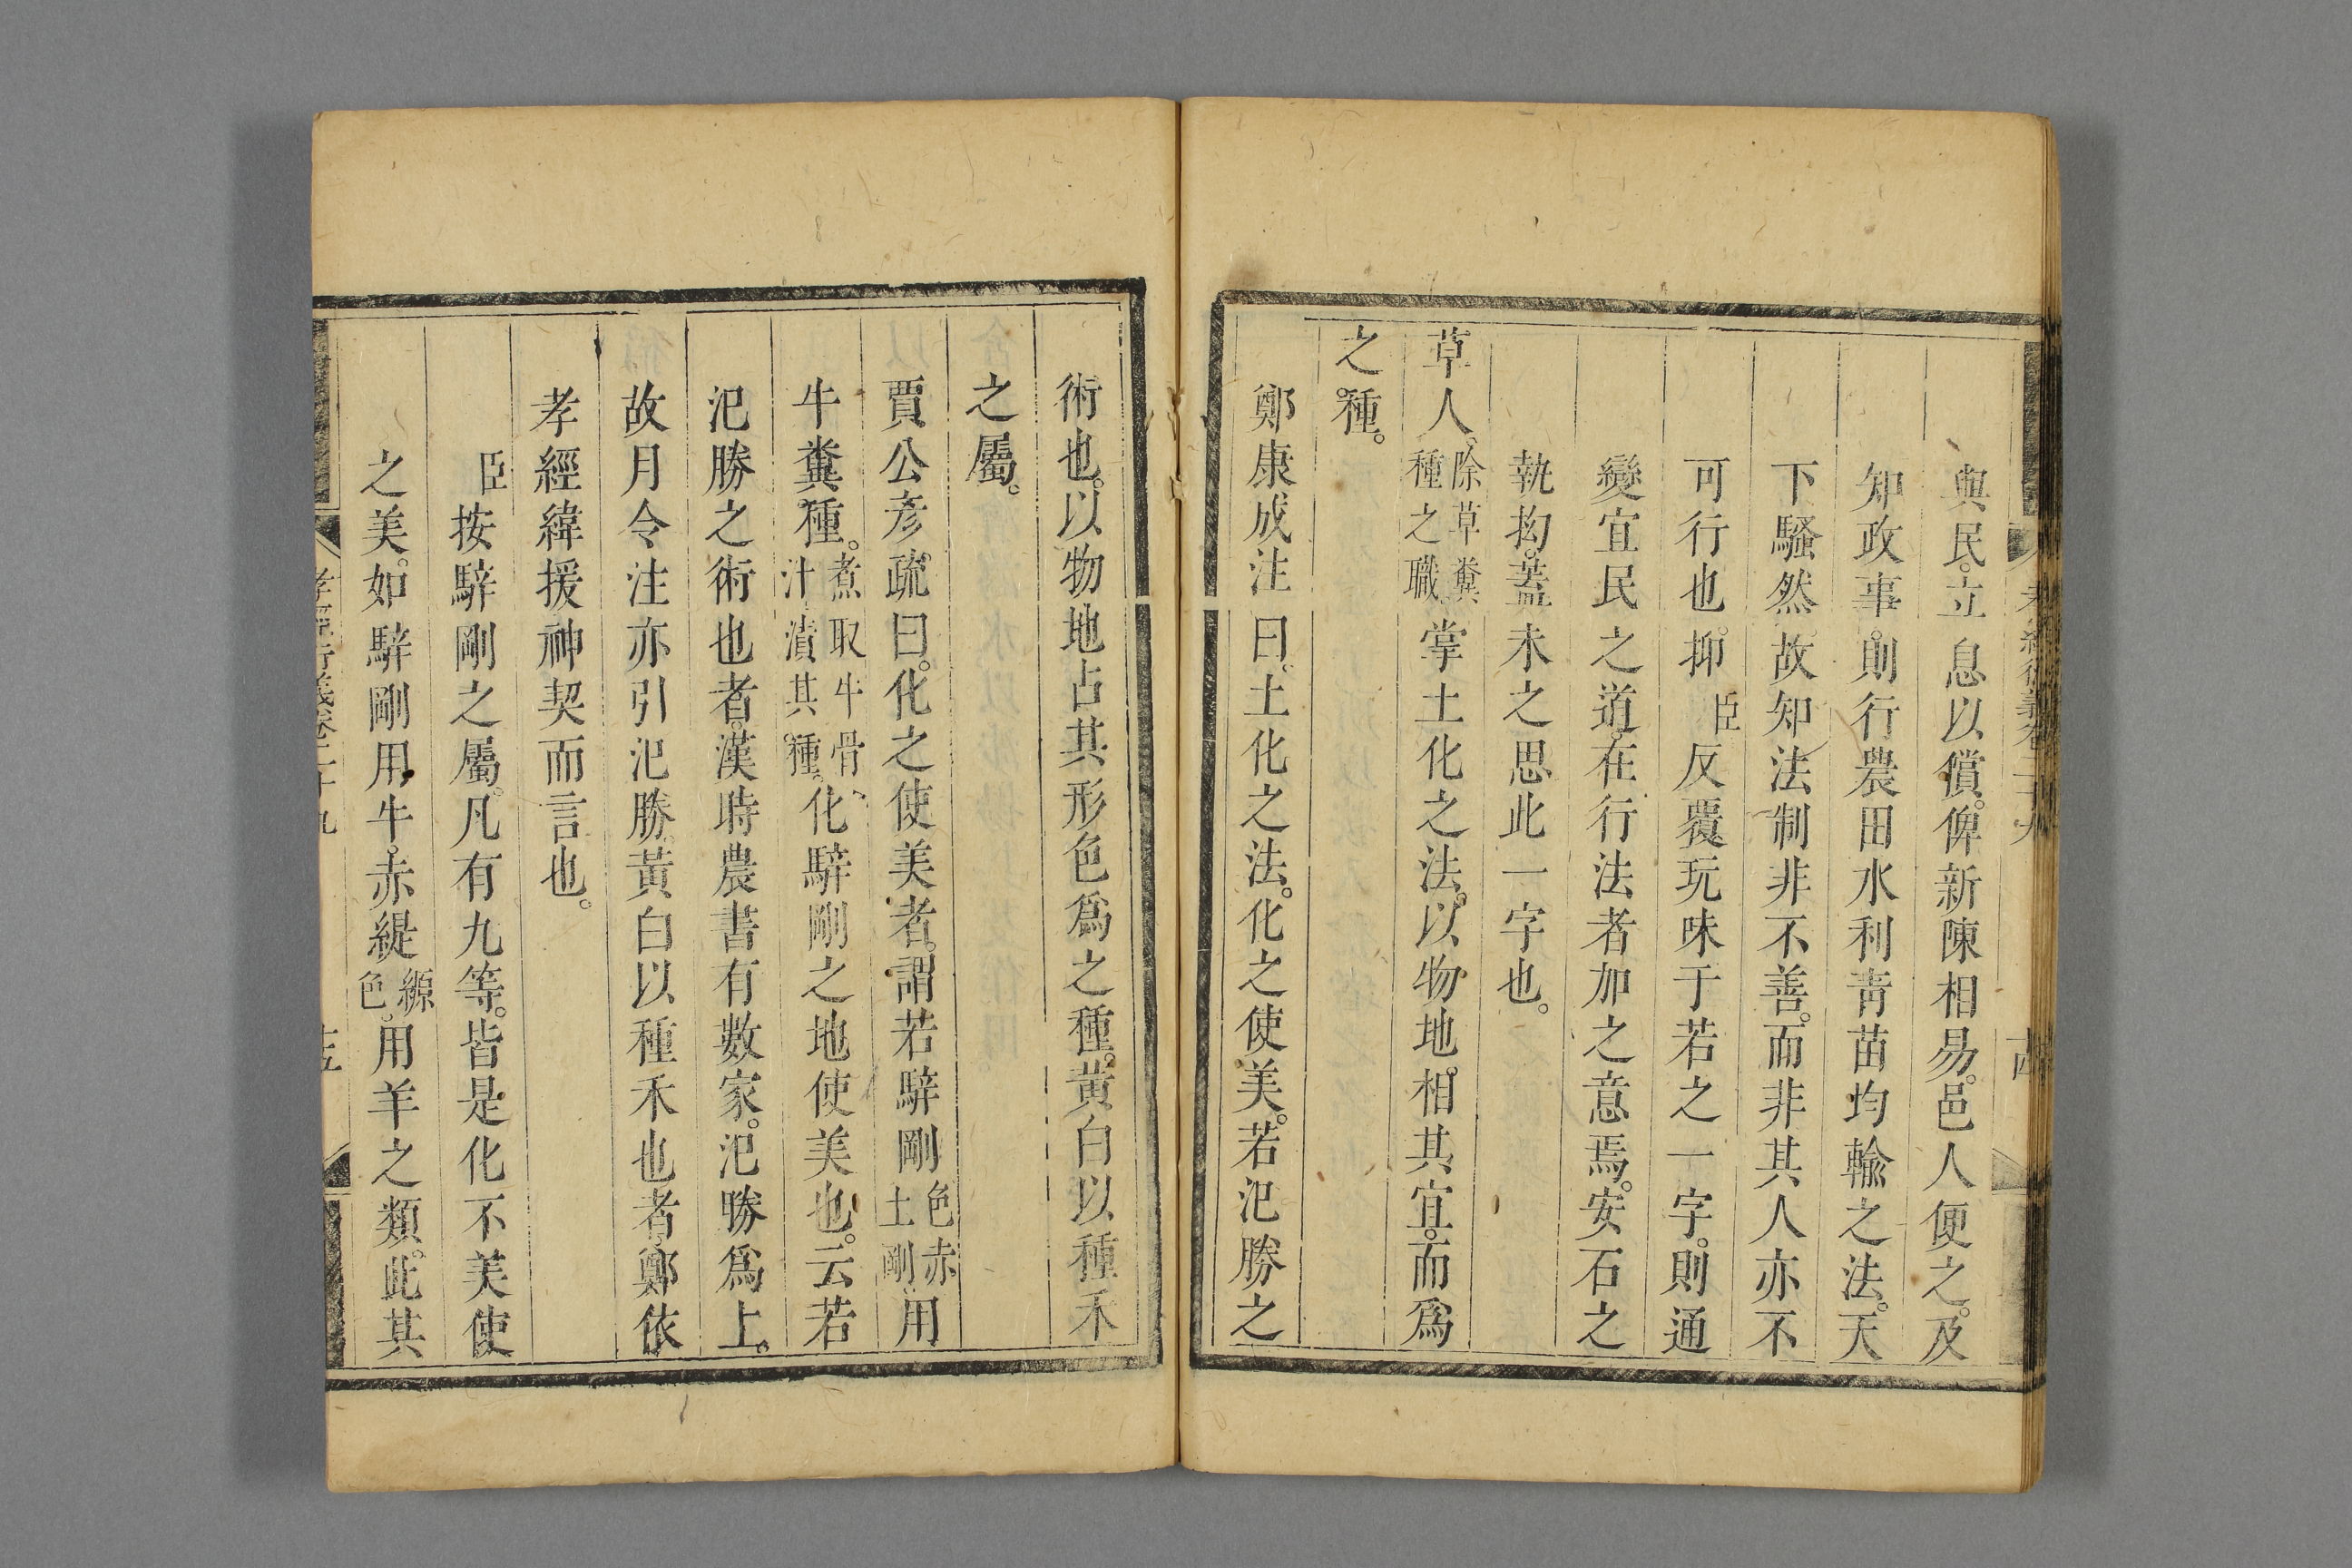 與民。立息以償。俾新陳相易。邑人便之。及
知政事。則行農田水利靑苗均輸之法。天
下騷然。故知法制非不善。而非其人亦不
可行也。抑臣反覆玩味于若之一字。則通
變宜民之道。在行法者加之意焉。安石之
執拗。蓋未之思此一字也。
草人。除草糞種之職掌土化之法。以物地。相其宜。而爲
之種。
鄭康成注曰。土化之法。化之使美。若氾勝之
術也。以物地占其形色爲之種。黃白以種禾
之屬。
賈公彥疏曰。化之使美者。謂若騂剛色赤土剛用
牛糞種。煮取牛骨汁漬其種。化騂剛之地使美也。云若
氾勝之術也者。漢時農書有數家。氾勝爲上。
故月令注亦引氾勝。黃白以種禾也者。鄭依
孝經緯援神契而言也。
臣按騂剛之屬。凡有九等。皆是化不美使
之美。如騂剛用牛。赤緹縓色。用羊之類。此其
孝經衍義卷二十九
十五